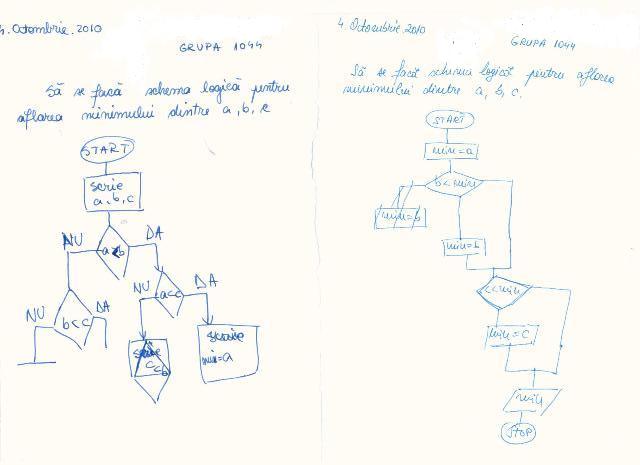 4. Octombrie. 2010
GRUPA 1044
Să se facă schema logică pentru
aflarea minimului dintre a, b, c
START
scrie
a, b, c
NU
DA
a<b
NU
DA
a<c
NU
DA
b<c
scrie
min=a
c<b
4. Octombrie. 2010
GRUPA 1044
Să se facă schema logică pentru aflarea
minimului dintre a, b, c.
START
min=a
b<min
min=b
min=b
c<min
min=c
min
STOP